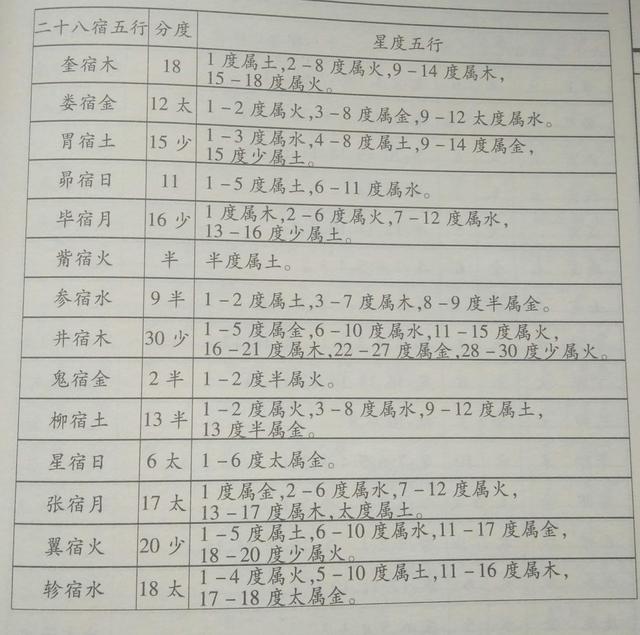 二十八宿五行 分度 星度五行
奎宿木 18 1 度属土,2－8 度属火,9－14 度属木,
15－18 度属火。
娄宿金 12 太 1－2 度属火,3－8 度属金,9－12 太度属水。
胃宿土 15 少 1－3 度属水,4－8 度属土,9－14 度属金,
15 度少属土。
昴宿日 11 1－5 度属土,6－11 度属水。
毕宿月 16 少 1 度属木,2－6 度属火,7－12 度属水,
13－16 度少属土。
觜宿火 半 半度属土。
参宿水 9 半 1－2 度属土,3－7 度属木,8－9 度半属金。
井宿木 30 少 1－5 度属金,6－10 度属水,11－15 度属火,
16－21 度属木,22－27 度属金,28－30 度少属火。
鬼宿金 2 半 1－2 度半属火。
柳宿土 13 半 1－2 度属火,3－8 度属水,9－12 度属土,
13 度半属金。
星宿日 6 太 1－6 度太属金。
张宿月 17 太 1 度属金,2－6 度属水,7－12 度属火,
13－17 度属木,太度属土。
翼宿火 20 少 1－5 度属土,6－10 度属水,11－17 度属金,
18－20 度少属火。
轸宿水 18 太 1－4 度属火,5－10 度属土,11－16 度属木,
17－18 度太属金。